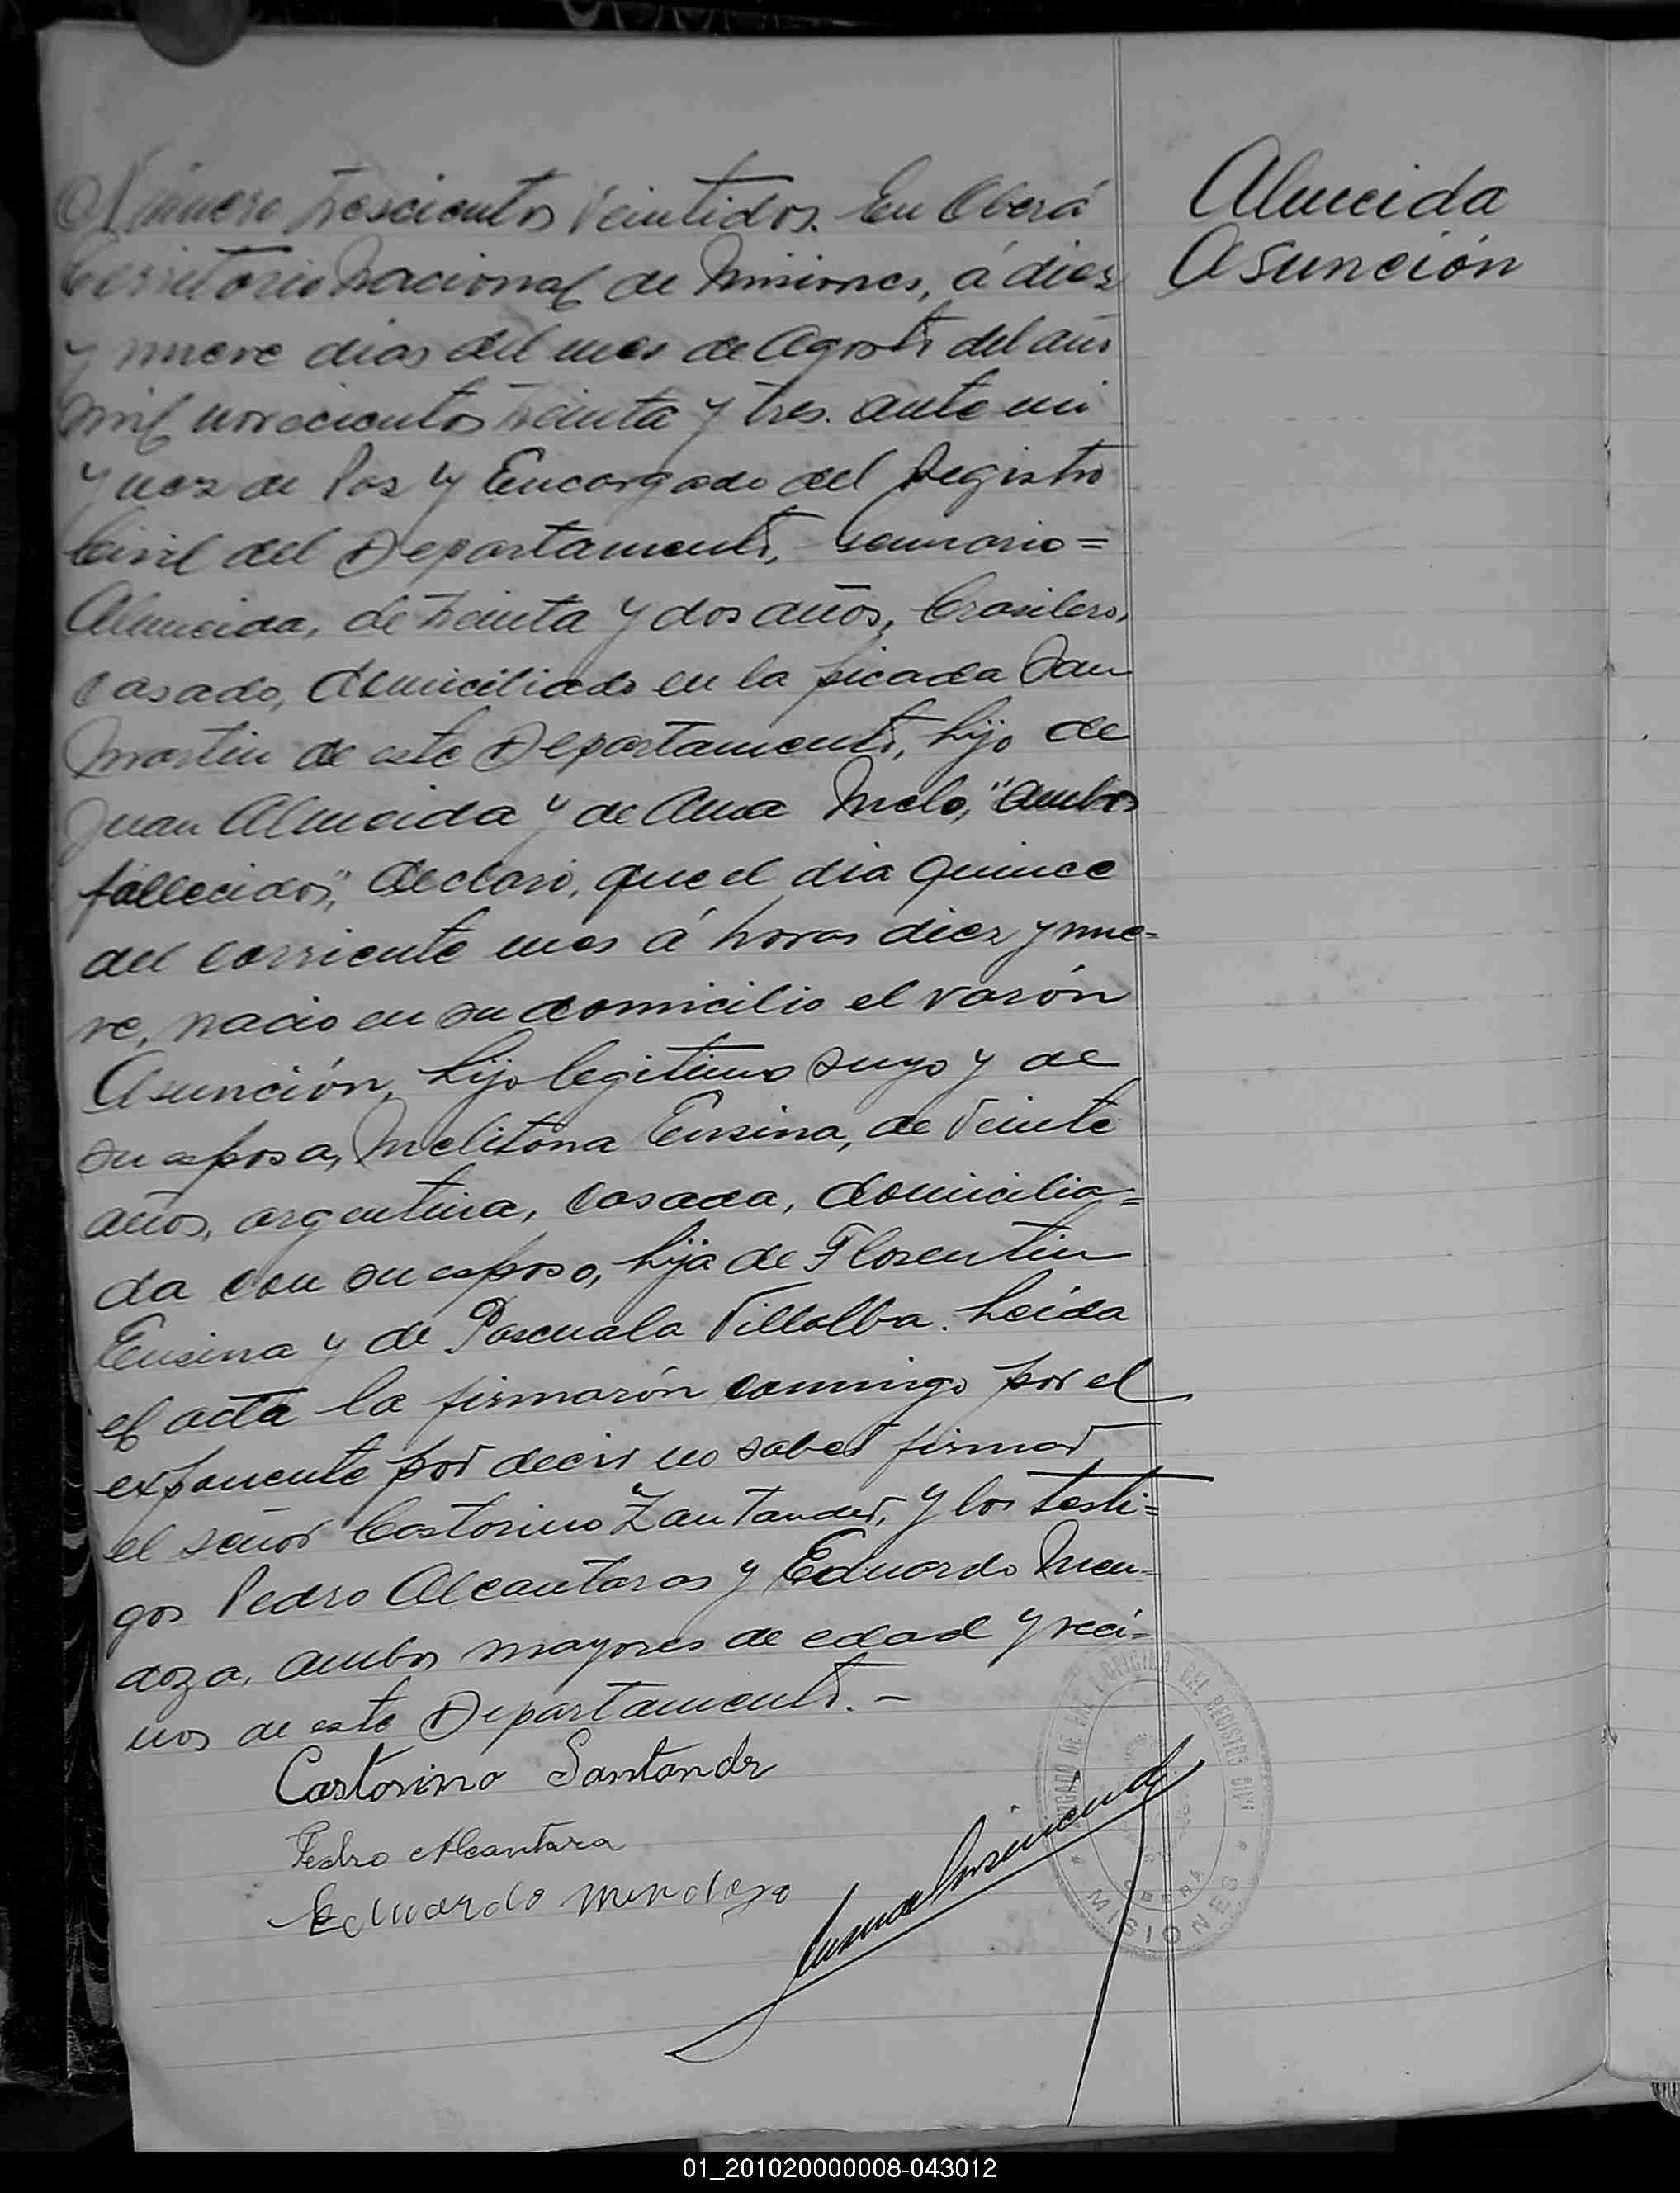 Número trescientos veintidos. En Oberá
Almeida
Asunción
Territorio Nacional de Misiones, á diez
y nueve dias del mes de Agosto del año
mil novecientos treinta y tres. ante mi
Juez de Paz y Encargado del Registro
Civil del Departamento,
Almeida, de treinta y dos años, brasilero,
casado, domiciliado en la picada San
Martin de este Departamento, hijo de
Juan Almeida y de Ana Melo, "ambos
fallecidos", declaró, que el dia quince
del corriente mes á horas diez y nue=
ve, nacio en su domicilio el varón
Asunción, hijo legitimo suyo y de
su esposa, Melitona Ensina, de veinte
años, argentina, casada, domicilia=
da con su esposo, hija de Florentin
Ensina y de Pascuala Villalba. Leída
el acta la firmarón conmigo por el
exponente por decir no saber firmar
el señor Castorino Zantander, y los testi=
gos Pedro Alcantaras y Eduardo Men=
doza, ambos mayores de edad y veci=
nos de este Departamento. –
Castorino Santander
Pedro Alcantara
Eduardo Mendoza
OFICINA DEL REGISTRO CIVIL
OBERA
* MISIONES *
01_201020000008-043012